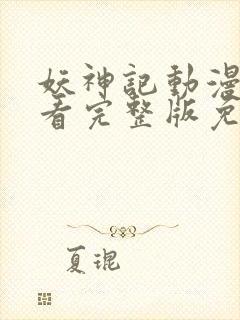 妖神記動漫
看完整版免
夏琨